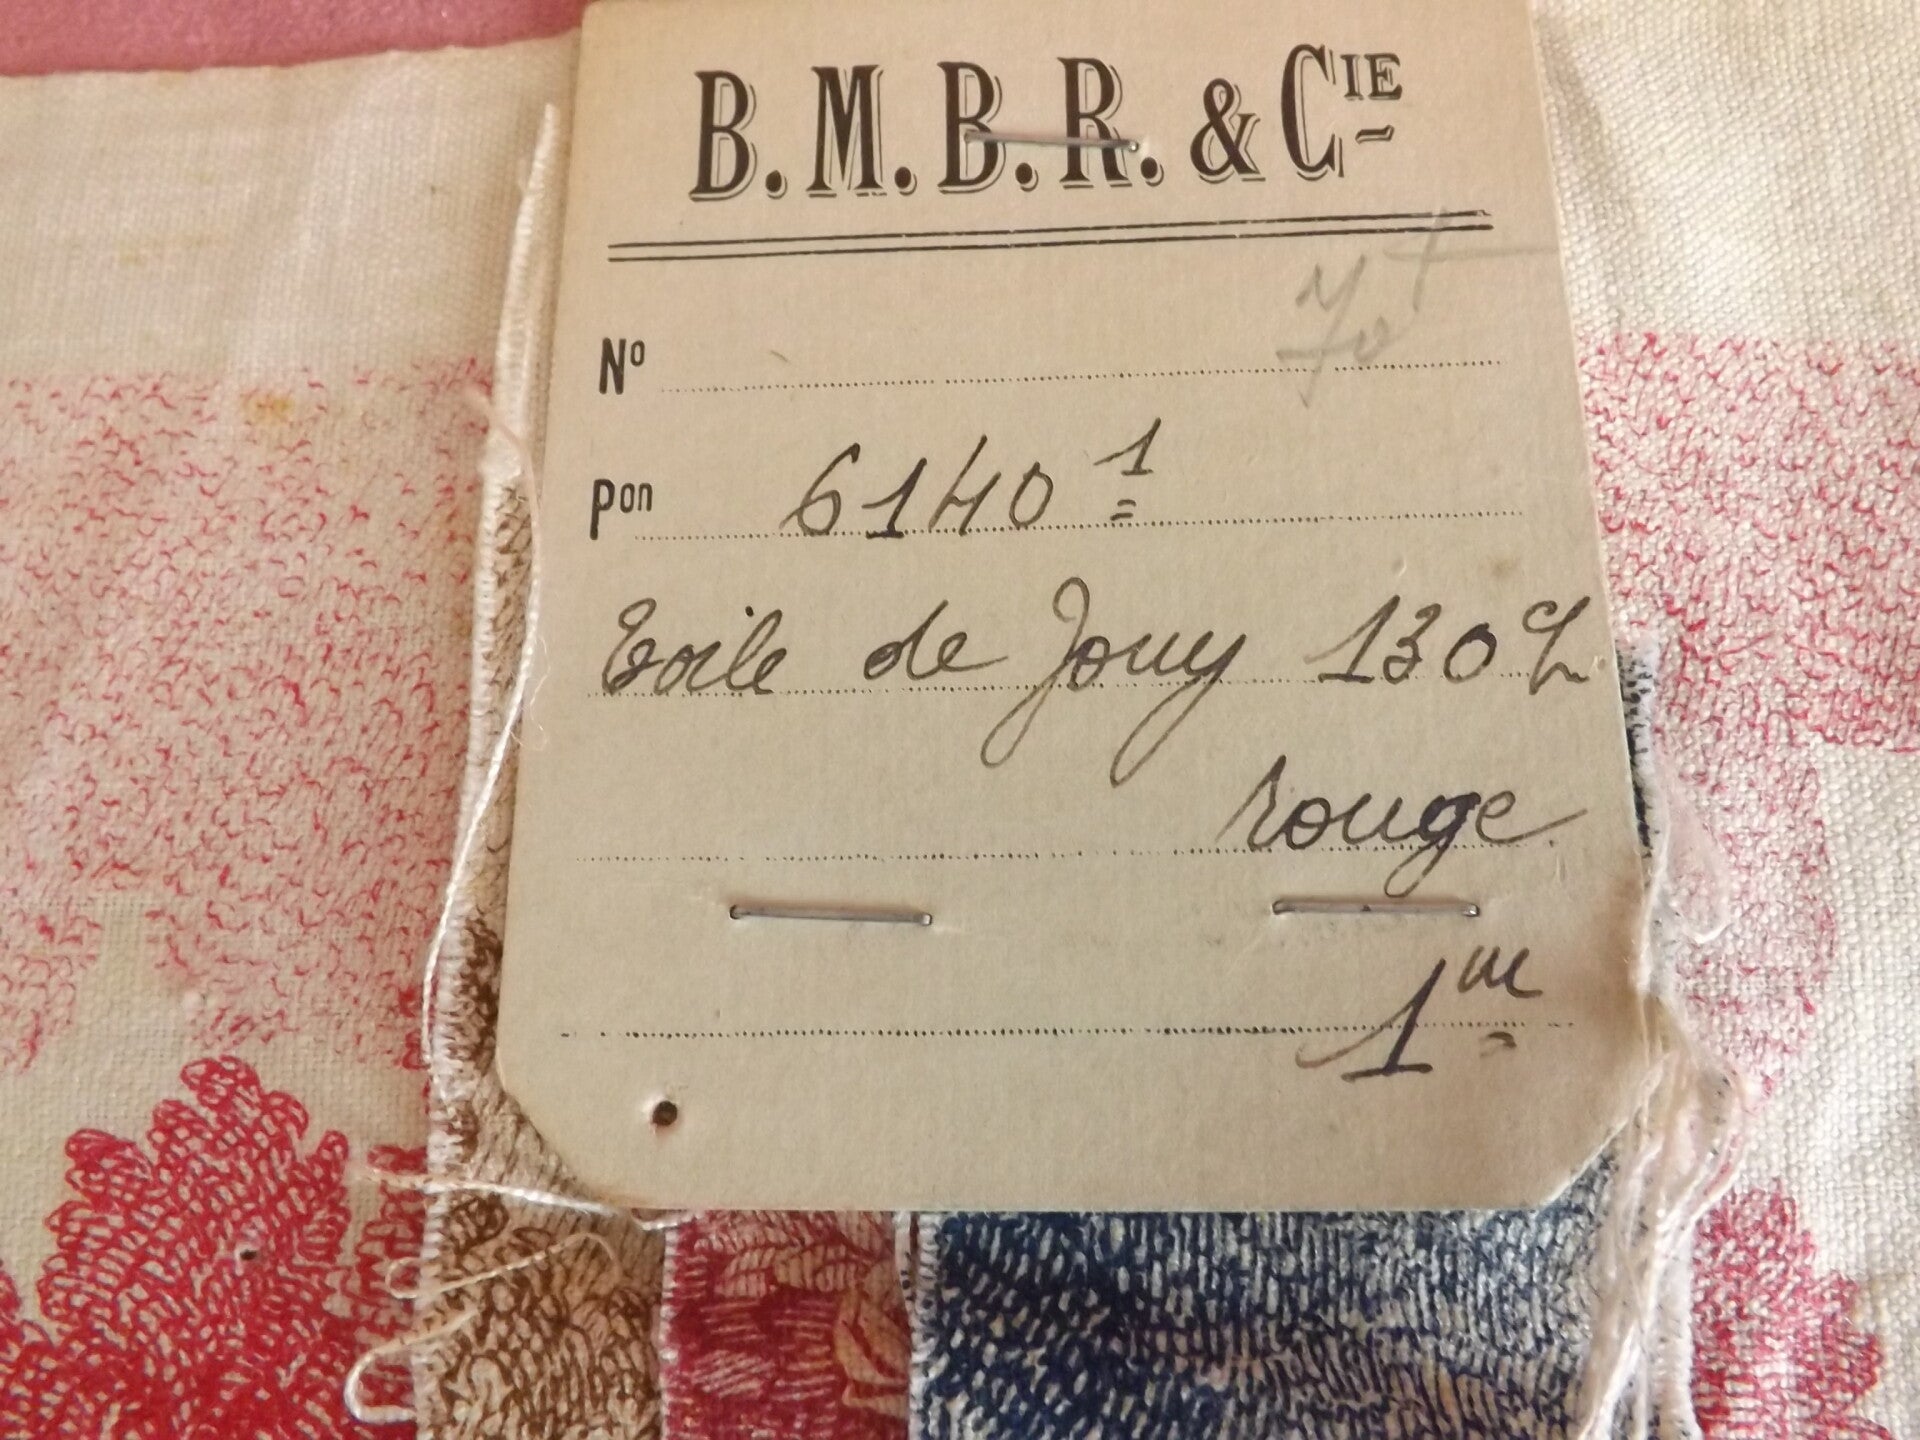 B. M. B. R. & CIE
No
Pon 6140 1
Toile de Jouy 130
rouge
1m